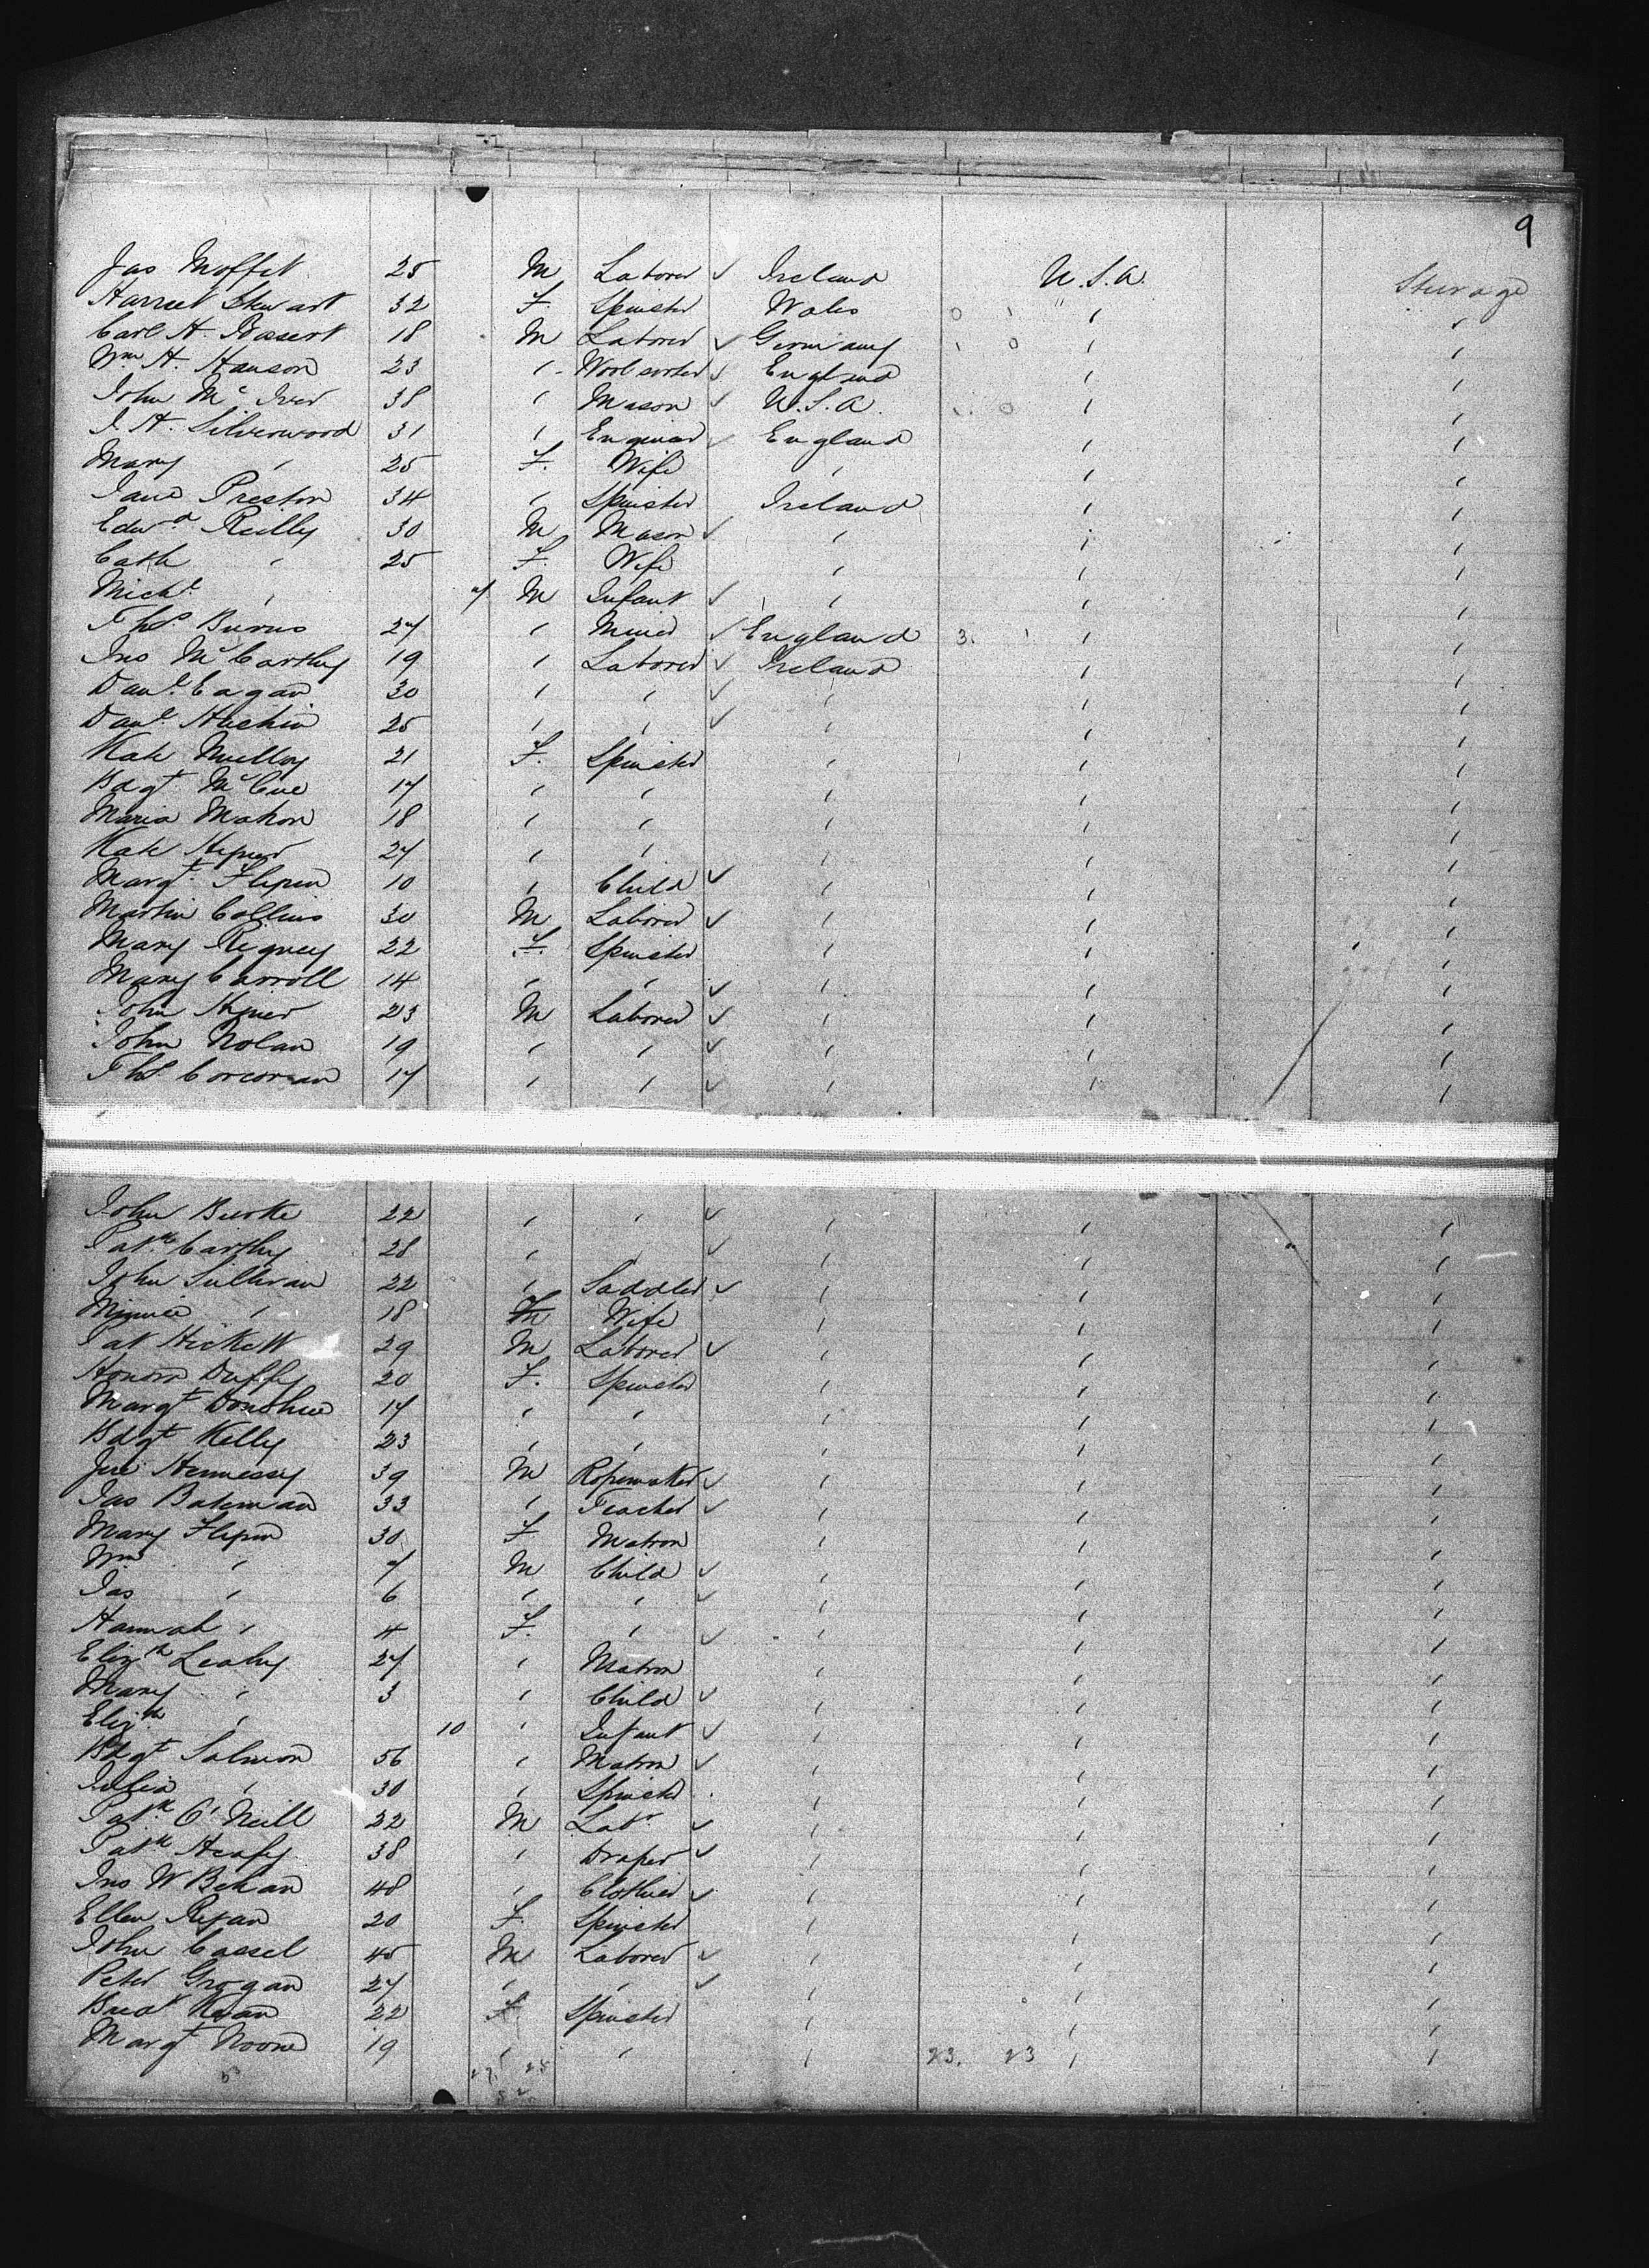 9
Jas Moffet 25 M Laborer ✓ Ireland U.S.A. Steerage
Harriet Stewart 32 F. Spinster Wales 0 1 " "
Carl H. 18 M Laborer ✓ Germany 1 0 " "
Wm. H. Hanson 23 " Woolsorter ✓ England " "
John Mc 38 " Mason ✓ U.S.A. 0 " "
J. H. Silverwood 31 " Engineer ✓ England " "
Mary " 25 F. Wife " " "
Jane Preston 34 " Spinster Ireland " "
Edwd Reilly 30 M Mason ✓ " " "
Cath " 25 F. Wife " " "
Michl " 7 M Infant ✓ " " "
Thos Burns 27 " Miner ✓ England 3. 1 " "
Jno McCarthy 19 " Laborer ✓ Ireland " "
Danl. Eagan 30 " " ✓ " " "
Danl. 25 " " ✓ " " "
Kate 21 F. Spinster " " "
Bdgt. McCue 17 " " " " "
Maria Mahon 18 " " " " "
Kate 27 " " " " "
Margt. 10 " Child ✓ " " "
Martin Collins 30 M Laborer ✓ " " "
Mary Rigney 22 F. Spinster " " "
Mary Carroll 14 " " ✓ " " "
John 23 M Laborer ✓ " " "
John Nolan 19 " " ✓ " " "
Thos Corcoran 17 " " ✓ " " "
John Burke 22 " " ✓ " " "
Patk. Carthy 28 " " ✓ " " "
John Sullivan 22 " Saddler ✓ " " "
Minnie " 18 F Wife " " "
Pat Hickett 29 M Laborer ✓ " " "
Honora Duffy 20 F. Spinster " " "
Margt Donohue 17 " " " " "
Bdgt Kelly 23 " " " " "
Jere Hennessy 39 M Ropemaker ✓ " " "
Jas Bateman 33 " Teacher ✓ " " "
Mary 30 F Matron " " "
Wm " 7 M Child ✓ " " "
Jas " 6 " " ✓ " " "
Hannah " 4 F. " ✓ " " "
Elizth Leahy 27 " Matron " " "
Mary " 3 " Child ✓ " " "
Elizth " 10 " Infant ✓ " " "
Bdgt Salmon 56 " Matron ✓ " " "
Julia " 30 " Spinster " " "
Patk. O'Neill 22 M Labr ✓ " " "
Patk Heafy 38 " Draper ✓ " " "
Jno W Behan 48 " Clothier ✓ " " "
Ellen Ryan 20 F. Spinster " " "
John Cassel 45 M Laborer ✓ " " "
Peter Grogan 27 " " ✓ " " "
22 F. Spinster " " "
Margt Noone 19 " " " 23. 23 " "